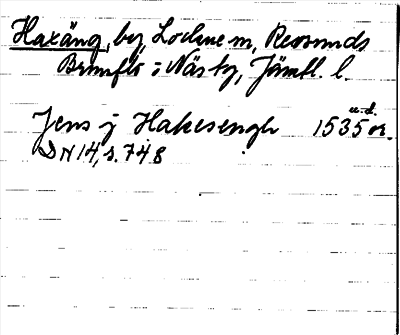 Haxäng, by, Lockne sn, Revsunds
Brunflo o Näs tg, Jämtl. l.
u.d.
Jens j Hakesengh 1535 or.
DN 14, s. 748